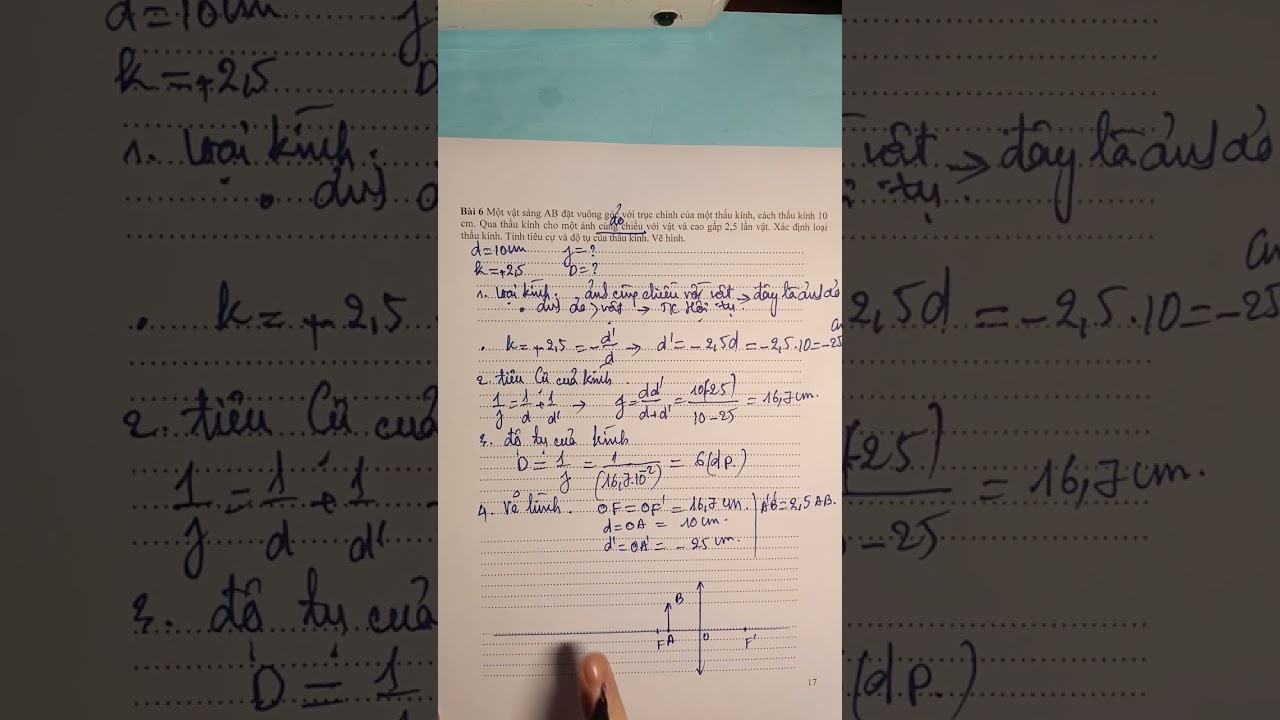 Bài 6 Một vật sáng AB đặt vuông góc với trục chính của một thấu kính, cách thấu kính 10
ảo
cm. Qua thấu kính cho một ảnh cùng chiều với vật và cao gấp 2,5 lần vật. Xác định loại
thấu kính. Tính tiêu cự và độ tụ của thấu kính. Vẽ hình.
d=10cm f=?
k=+2,5 D=?
1. loại kính. ảnh cùng chiều với vật → đây là ảnh ảo
• ảnh ảo > vật → TK Hội tụ.
• k=+2,5 = -d'/d → d' = -2,5d = -2,5.10 = -25 cm
2. tiêu cự của kính
1/f = 1/d + 1/d' → f = dd'/(d+d') = 10(-25)/(10-25) = 16,7 cm.
3. độ tụ của kính
D = 1/f = 1/(16,7.10^-2) = 6 (dp.)
4. Vẽ hình. OF = OF' = 16,7 cm. | A'B' = 2,5 AB.
d = OA = 10 cm.
d' = OA' = -25 cm.
B
F A O F'
17